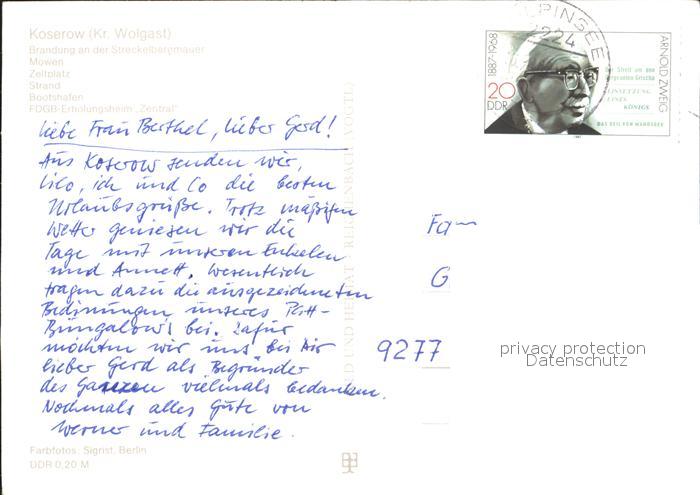 Koserow (Kr. Wolgast)
Brandung an der Streckelbergmauer
Möwen
Zeltplatz
Strand
Bootshafen
FDGB-Erholungsheim „Zentral"
Liebe Frau Berthel, lieber Gerd!
Aus Koserow senden wir,
Lilo, ich und Co die besten
Urlaubsgrüße. Trotz mäßigen
Wetter geniesen wir die
Tage mit unseren Enkelen
und Annett. Wesentlich
tragen dazu die ausgezeichneten
Bedinungen unseres
Bungalow's bei. Dafür
möchten wir uns bei Dir
lieber Gerd als Begründer
des Ganzen vielmals bedanken.
Nochmals alles Gute von
Werner und Familie.
Farbfotos: Sigrist, Berlin
DDR 0,20 M
BILD UND HEIMAT REICHENBACH (VOGTL)
LPINSEE
2224
1887-1968
20
DDR
ARNOLD ZWEIG
Der Streit um den
Sergeanten Grischa
EINSETZUNG
EINES
KÖNIGS
DAS BEIL VON WANDSBEK
1987
Fam
G
9277
privacy protection
Datenschutz